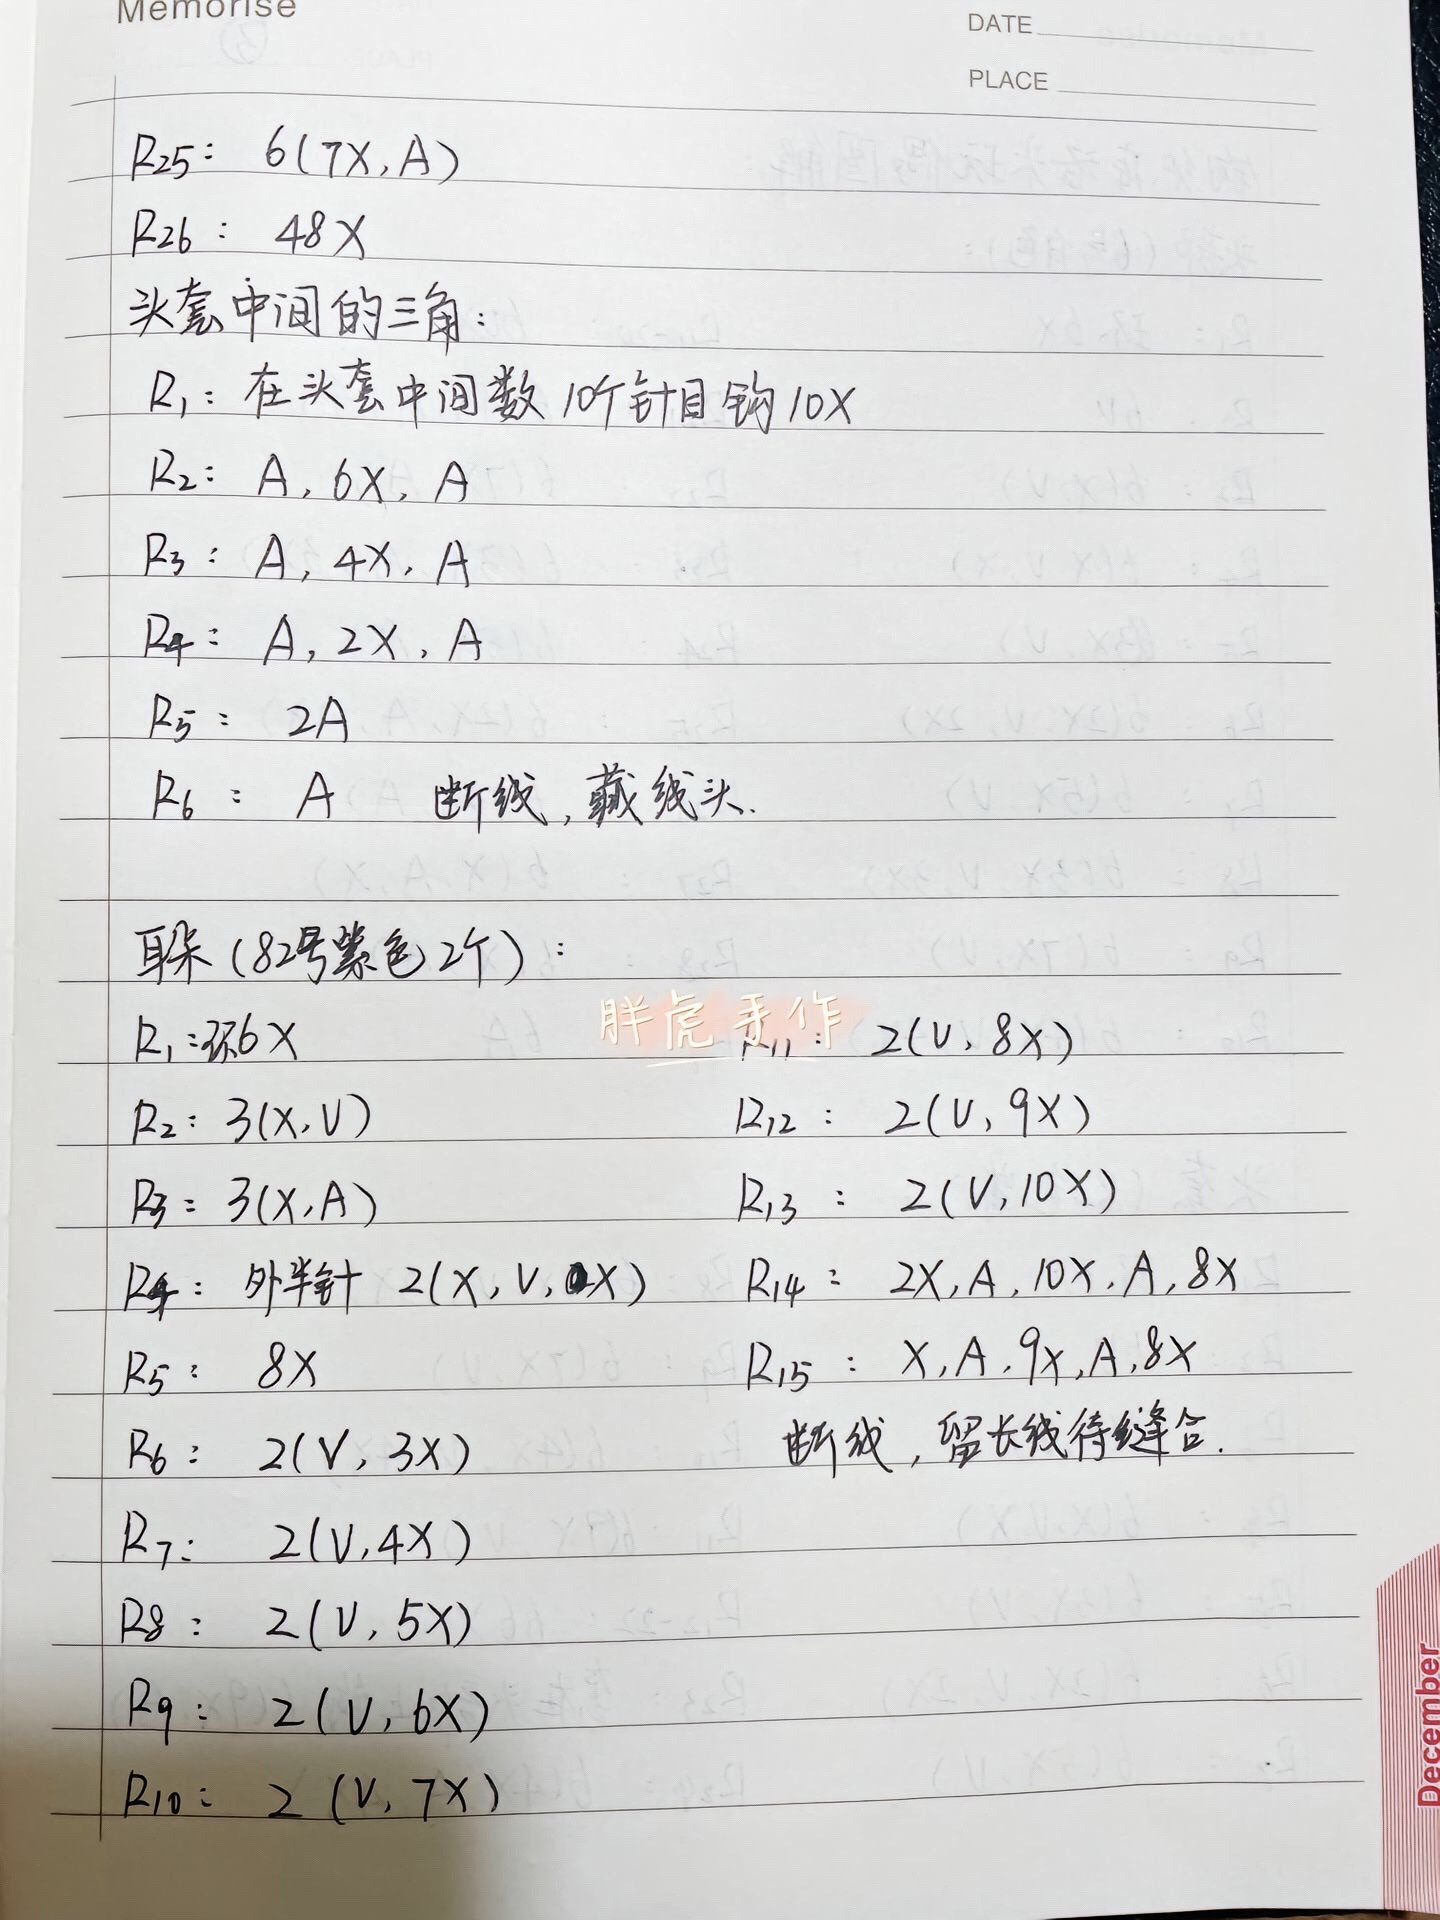 Memorise
DATE
PLACE
R25: 6(7X,A)
R26: 48X
头套中间的三角:
R1: 在头套中间数10个针目钩10X
R2: A, 6X, A
R3: A, 4X, A
R4: A, 2X, A
R5: 2A
R6: A 断线,藏线头.
耳朵(82号紫色2个):
胖虎手作
R1:环6X
R2: 3(X,V)
R3: 3(X,A)
R4: 外半针 2(X,V,X)
R5: 8X
R6: 2(V,3X)
R7: 2(V,4X)
R8: 2(V,5X)
R9: 2(V,6X)
R10: 2(V,7X)
R11: 2(V,8X)
R12: 2(V,9X)
R13: 2(V,10X)
R14: 2X,A,10X,A,8X
R15: X,A,9X,A,8X
断线,留长线待缝合.
December